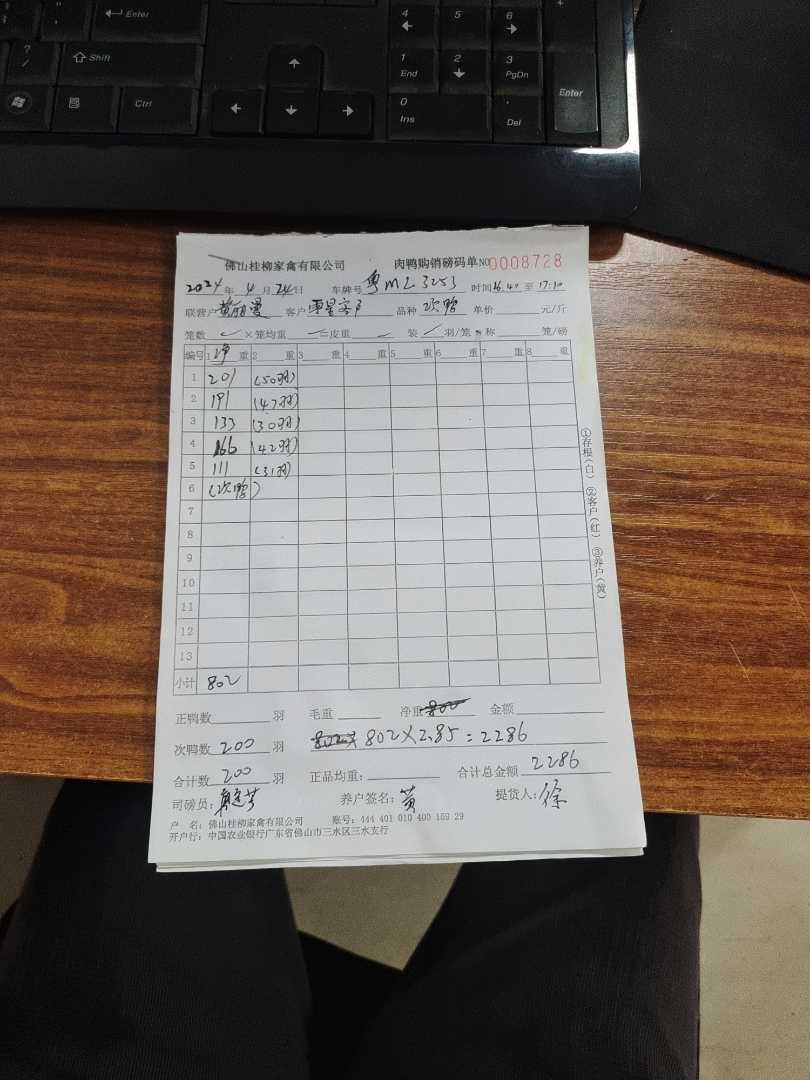 Enter
Shift
Ctrl
4 5 6
1 End 2 3 PgDn
0 Ins . Del
Enter
佛山桂柳家禽有限公司 肉鸭购销磅码单 NO 0008728
2024 年 4 月 24 日 车牌号 粤ML3253 时间 16.40 至 17:10
联营户 客户 品种 次鸭 单价 元/斤
笼数 × 笼均重 = 皮重 装 羽/笼 称 笼/磅
编号 1 净 重 2 重 3 重 4 重 5 重 6 重 7 重 8 重
1 201 (50羽)
2 191 (47羽)
3 133 (30羽)
4 166 (42羽)
5 111 (31羽)
6 (次鸭)
7
8
9
10
11
12
13
小计 802
①存根(白) ②客户(红) ③养户(黄)
正鸭数 羽 毛重 净重 802 金额
次鸭数 200 羽 802× 802×2.85=2286
合计数 200 羽 正品均重: 合计总金额 2286
司磅员: 养户签名: 黄 提货人: 徐
户 名: 佛山桂柳家禽有限公司 账号: 444 401 010 400 159 29
开户行: 中国农业银行广东省佛山市三水区三水支行